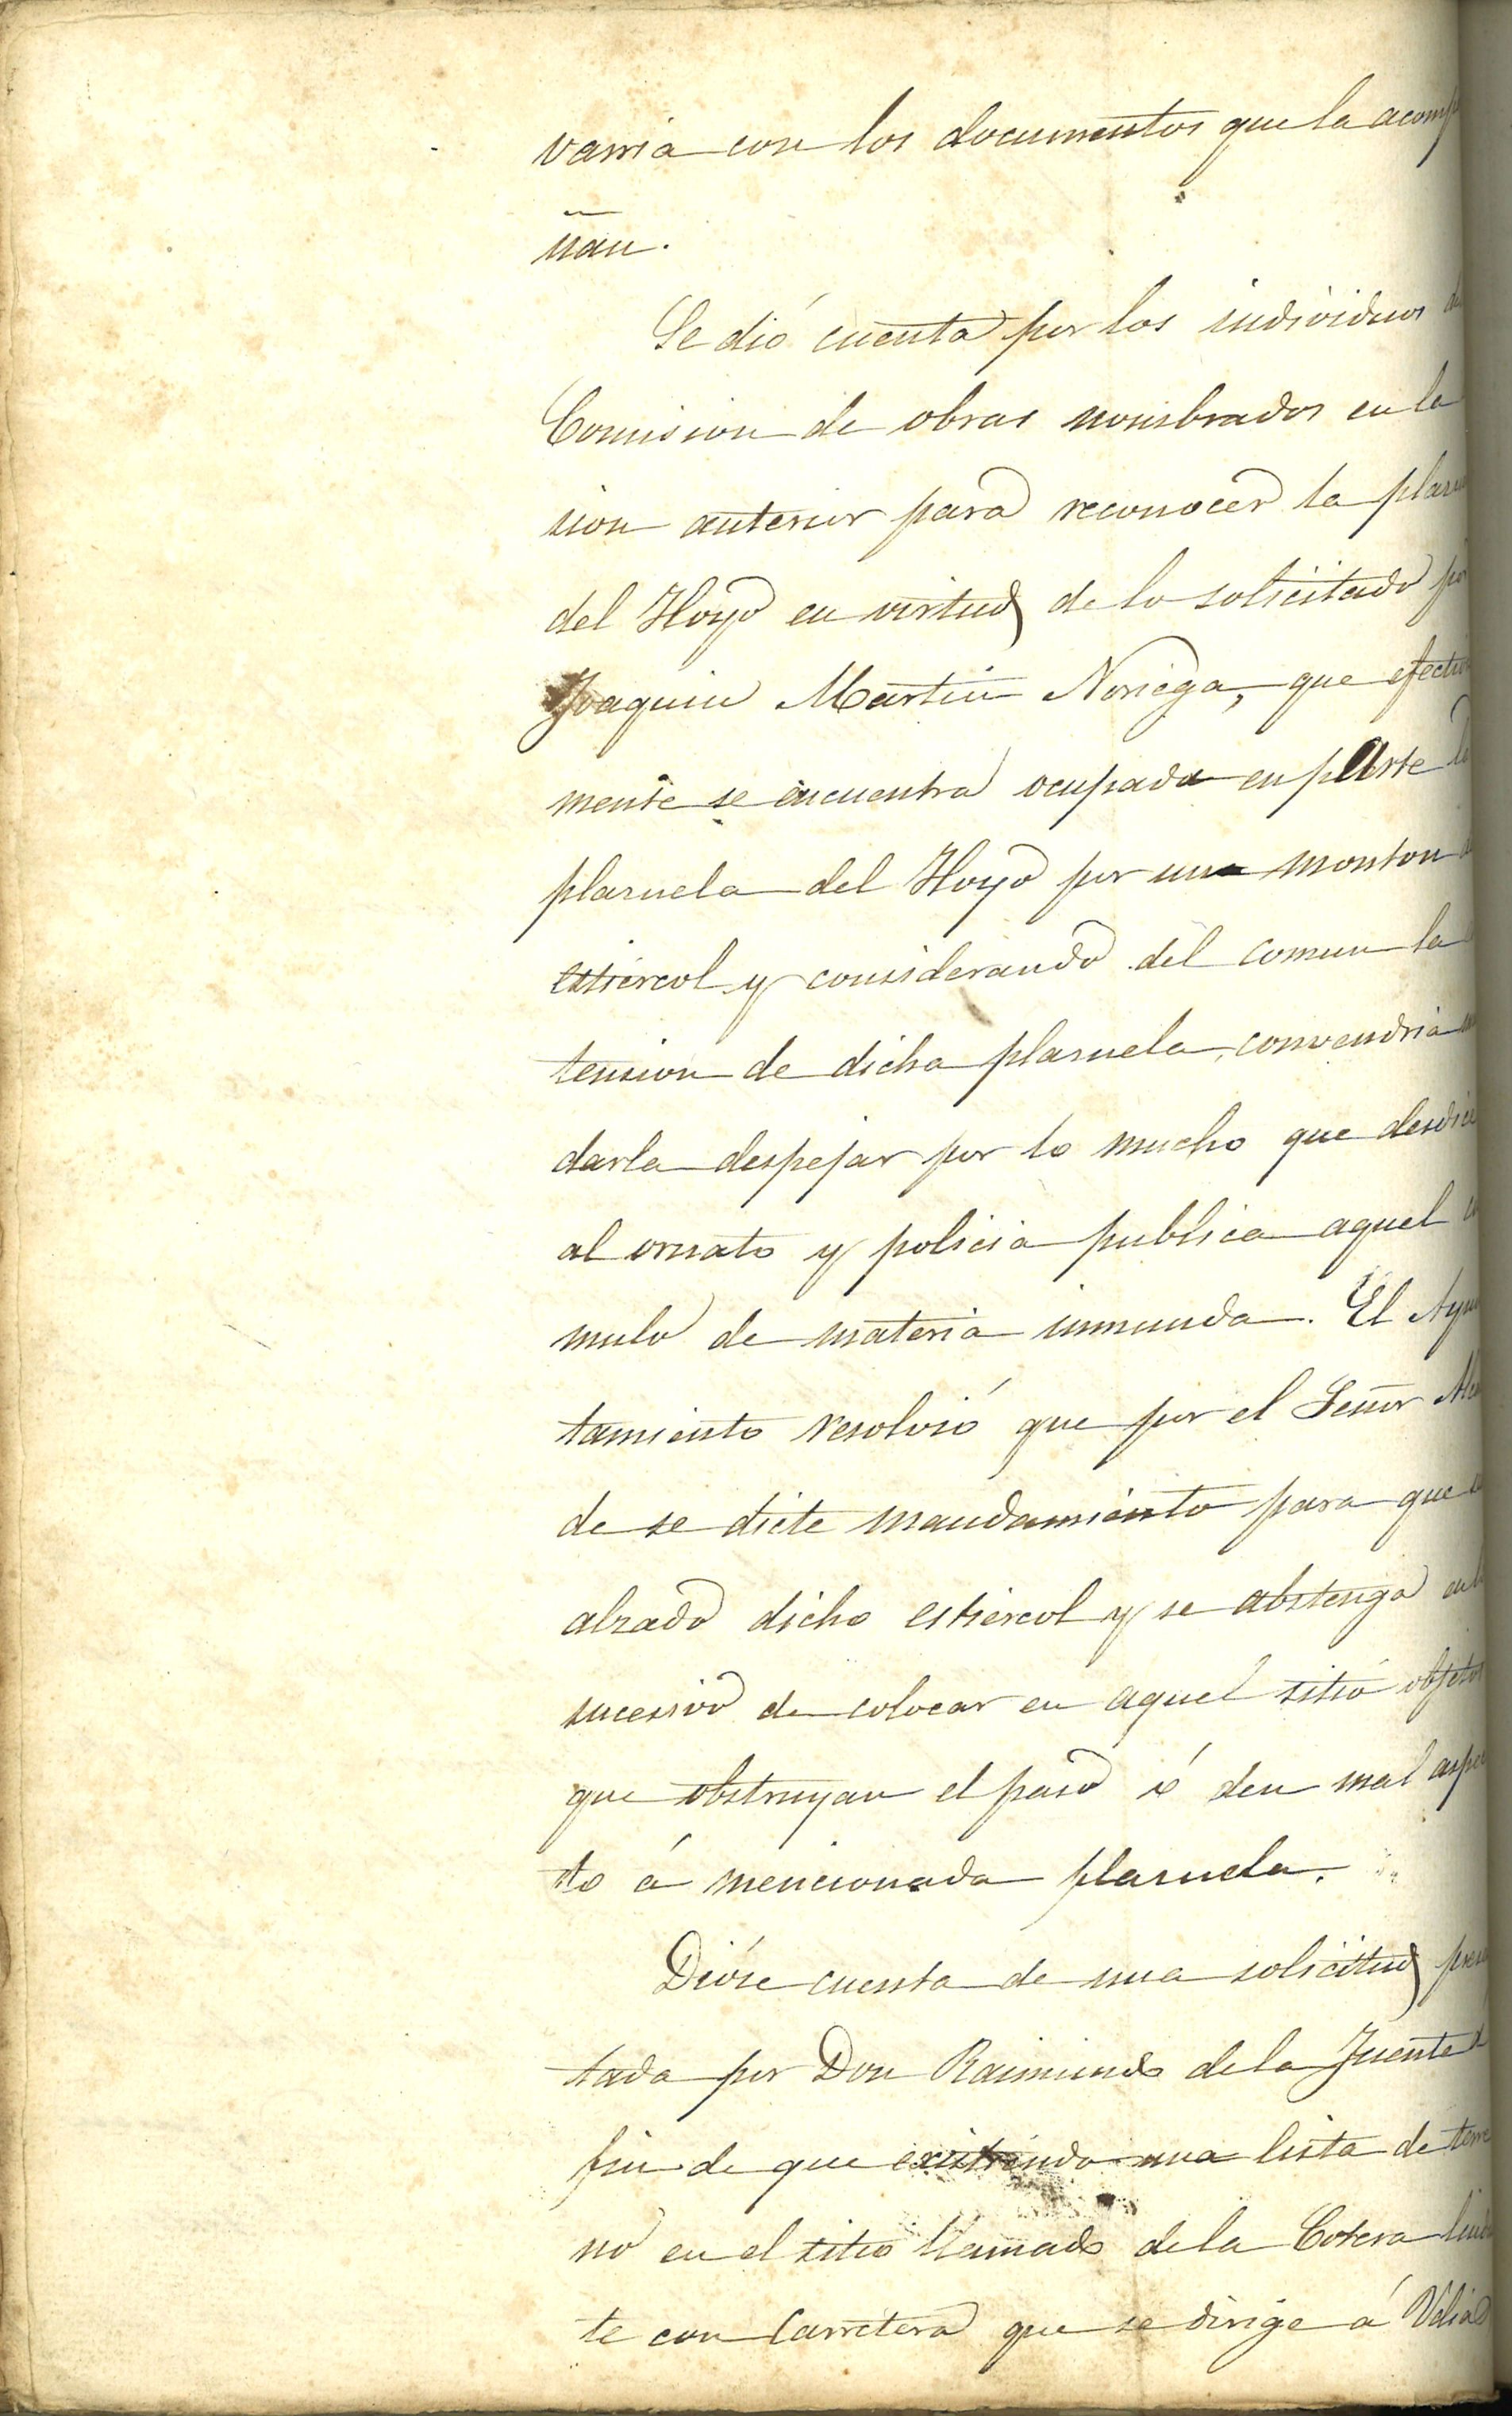 varria con los documentos que la acomp
ñan.
Se dió cuenta por los individuos
Comision de obras nombrados en la
sion anterior para reconocer la plazu
del Hoyo en virtud de lo solicitado por
Joaquin Martin Noriega, que efectiv
mente se encuentra ocupada en parte la
plazuela del Hoyo por un monton
estiercol y considerando del comun la
tension de dicha plazuela, convendria
darla despejar por lo mucho que desdice
al ornato y policia publica aquel
mulo de materia inmunda. El Ayun
tamiento resolvió que por el Señor Alcal
de se dicte mandamiento para que
alzado dicho estiercol y se abstenga en lo
sucesivo de colocar en aquel sitio objetos
que obstruyan el paso ó den mal aspec
to á mencionada plazuela.
Dióse cuenta de una solicitud presen
tada por Don Raimundo de la Fuente á
fin de que existiendo una lista de terre
no en el sitio llamado de la Cotera linda
te con carretera que se dirige á Valiad